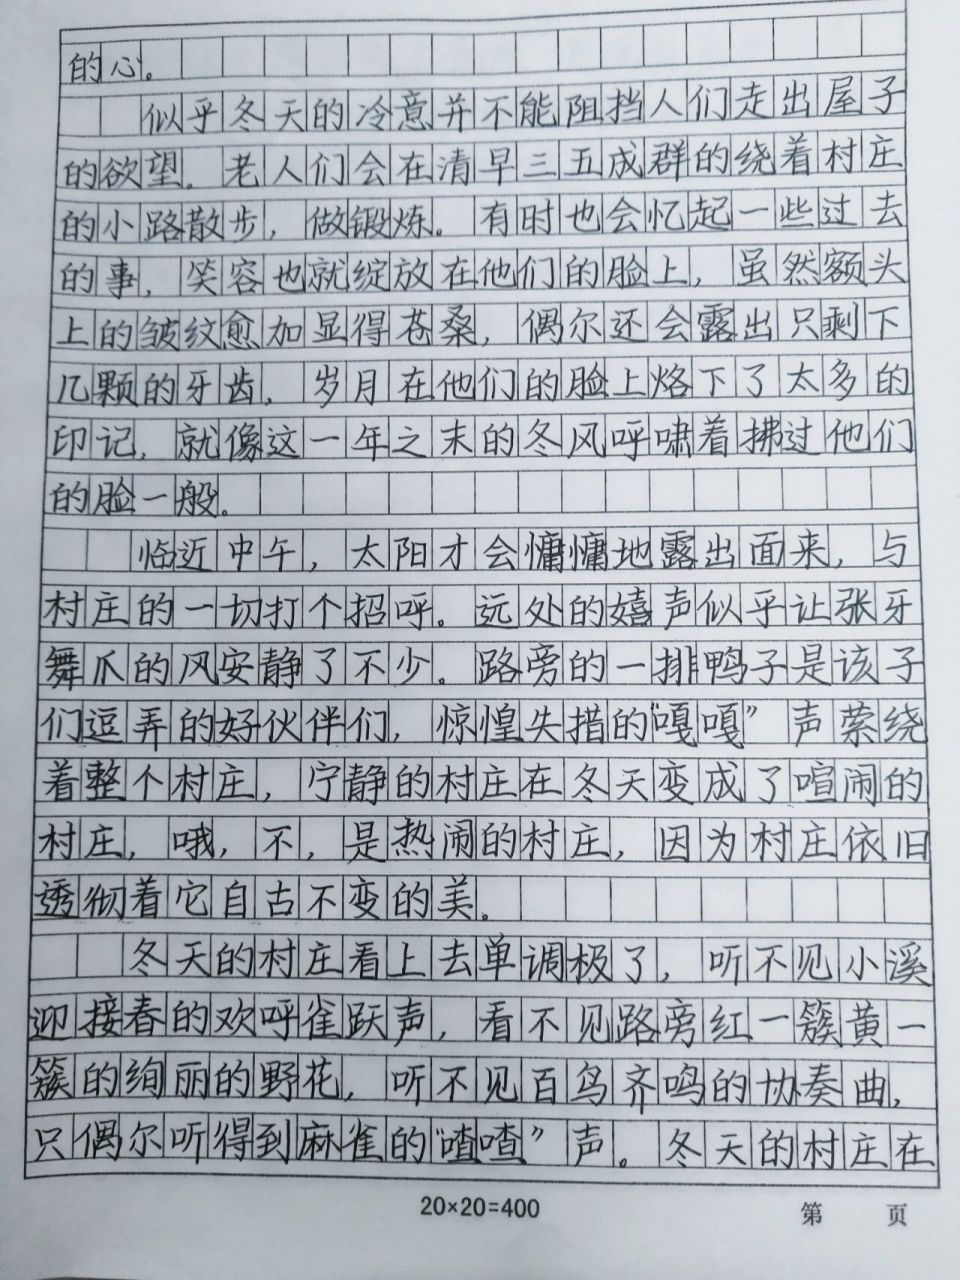 的心。
似乎冬天的冷意并不能阻挡人们走出屋子
的欲望。老人们会在清早三五成群的绕着村庄
的小路散步，做锻炼。有时也会忆起一些过去
的事，笑容也就绽放在他们的脸上，虽然额头
上的皱纹愈加显得苍桑，偶尔还会露出只剩下
几颗的牙齿，岁月在他们的脸上烙下了太多的
印记，就像这一年之末的冬风呼啸着拂过他们
的脸一般。
临近中午，太阳才会慵慵地露出面来，与
村庄的一切打个招呼。远处的嬉声似乎让张牙
舞爪的风安静了不少。路旁的一排鸭子是该子
们逗弄的好伙伴们，惊惶失措的“嘎嘎”声萦绕
着整个村庄，宁静的村庄在冬天变成了喧闹的
村庄，哦，不，是热闹的村庄，因为村庄依旧
透彻着它自古不变的美。
冬天的村庄看上去单调极了，听不见小溪
迎接春的欢呼雀跃声，看不见路旁红一簇黄一
簇的绚丽的野花，听不见百鸟齐鸣的协奏曲，
只偶尔听得到麻雀的“喳喳”声。冬天的村庄在
20×20=400
第 页